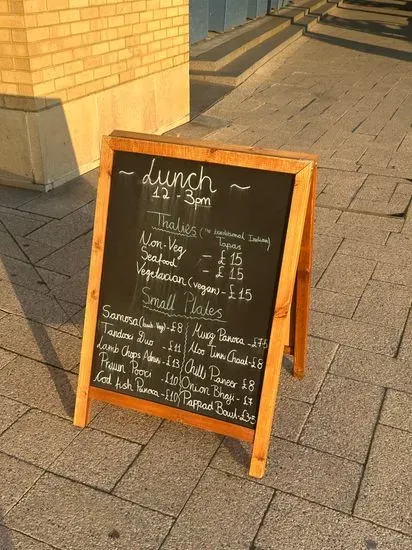 ~ Lunch ~
12 - 3pm
Thalies (the traditional Indian Tapas)
Non-Veg - £15
Seafood - £15
Vegetarian (vegan) - £15
Small Plates
Samosa - £8
Tandoori Duo - £11
Lamb Chops - £13
Prawn Poori - £10
Cod fish Panora - £10
Murg Panora - £7.5
Aloo Tinni Chaat - £8
Chilli Paneer £8
Onion Bhaji - £7
Pappad Bowl - £3.5